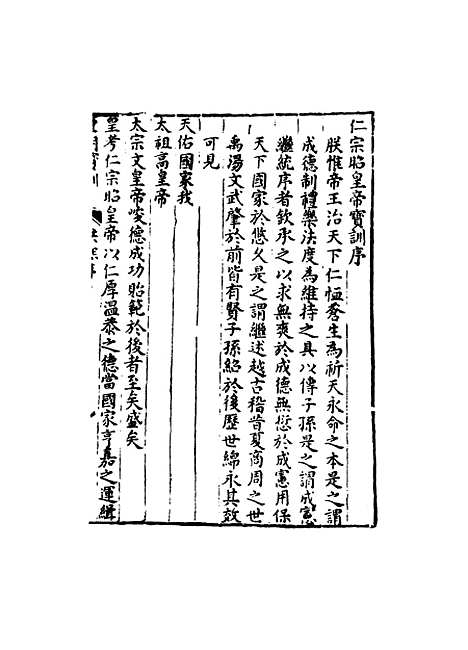 仁宗昭皇帝寶訓序
朕惟帝王治天下仁恆蒼生為祈天永命之本是之謂
成德制禮樂法度為維持之具以傳子孫是之謂成憲
繼統序者欽承之以求無爽於成德無愆於成憲用保
天下國家於悠久是之謂繼述越古稽昔夏商周之世
禹湯文武肇於前皆有賢子孫紹於後歷世綿永其效
可見
天佑國家我
太祖高皇帝
太宗文皇帝峻德成功貽範於後者至矣盛矣
皇考仁宗昭皇帝以仁厚溫恭之德當國家亨嘉之運緝